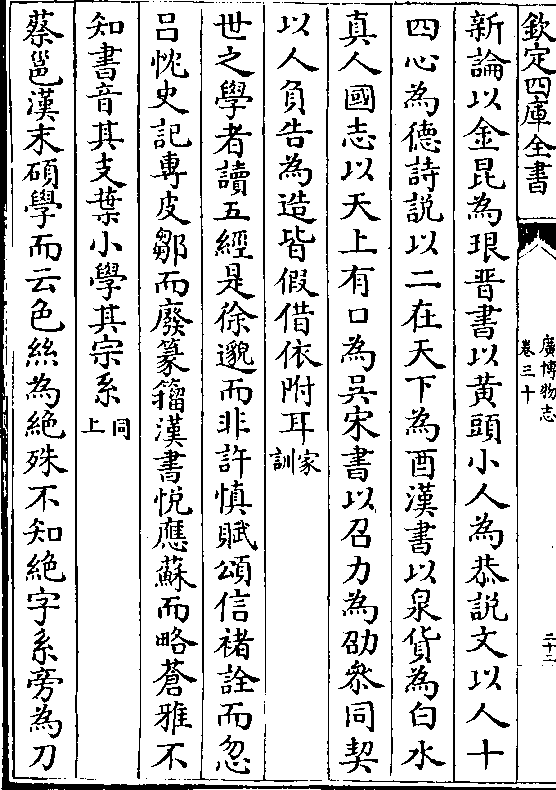 欽定四庫全書
廣博物志
卷三十
二十二
新論以金昆為珢晋書以黄頭小人為恭説文以人十
四心為徳詩説以二在天下為酉漢書以泉貨為白水
真人國志以天上有口為吳宋書以召力為劭叅同契
以人負告為造皆假借依附耳家訓
世之學者讀五經是徐邈而非許慎賦頌信禇詮而忽
吕忱史記專皮鄒而廢篆籒漢書悦應蘇而略蒼雅不
知書音其支葉小學其宗系同上
蔡邕漢末碩學而云色絲為絶殊不知絶字糸旁為刀